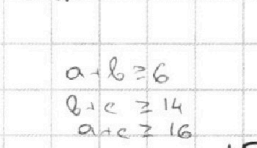 a+b ≥ 6
b+c ≥ 14
a+c ≥ 16